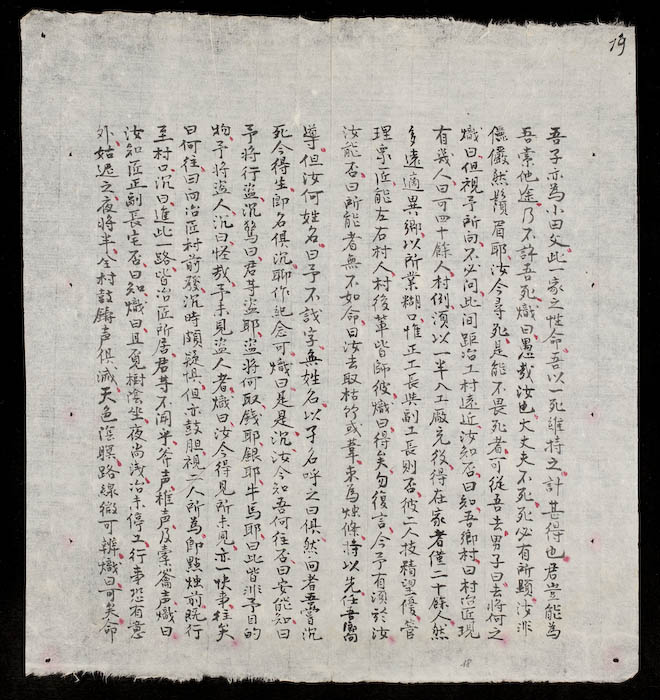 19
吾子亦為小田父此一家之性命吾以一死維持之計甚得也君豈能為
吾索他途乃不許吾死熾曰愚哉汝也大丈夫不死死必有所顧汝非
儼儼然鬚眉耶汝今尋死是能不畏死者可從吾去男子曰去將何之
熾曰但視予所向不必問此間距冶工村遠近汝知否曰知吾鄉村曰村冶匠現
有幾人曰可四十餘人村例須以一半入工廠充役得在家者僅二十餘人然
多遠適異鄉以所業糊口惟正工長與副工長則否彼二人技精望優管
理眾匠能左右村人村後輩皆師彼熾曰得矣勿復言今予有須於汝
汝能否曰所能者無不如命曰汝去取枯竹或葦束為燭條將以先任吾嚮
導但汝何姓名曰予不識字無姓名以子名呼之曰俱然向者吾嘗沉
死今得生即名俱沉聊作紀念可熾曰是是沉汝今知吾何往否曰安能知曰
予將行盜沉驚曰君等盜耶盜將何取錢耶銀耶牛馬耶曰此皆非予目的
物予將盜人沉曰怪哉予未見盜人者熾曰汝今得見所未見亦一快事往矣
曰何往曰向冶匠村前發沉時頗疑惧但亦鼓胆視二人所為即點燭前既行
至村口沉曰進此一路皆冶匠所居君等不聞斧声椎声及橐籥声熾曰
汝知匠正副長宅否曰知熾曰且覓樹陰坐夜尚淺冶未停工行事恐有意
外姑遲之夜將半全村鼓鑄声俱滅天色陰瞑路線微可辨熾曰可矣命
18